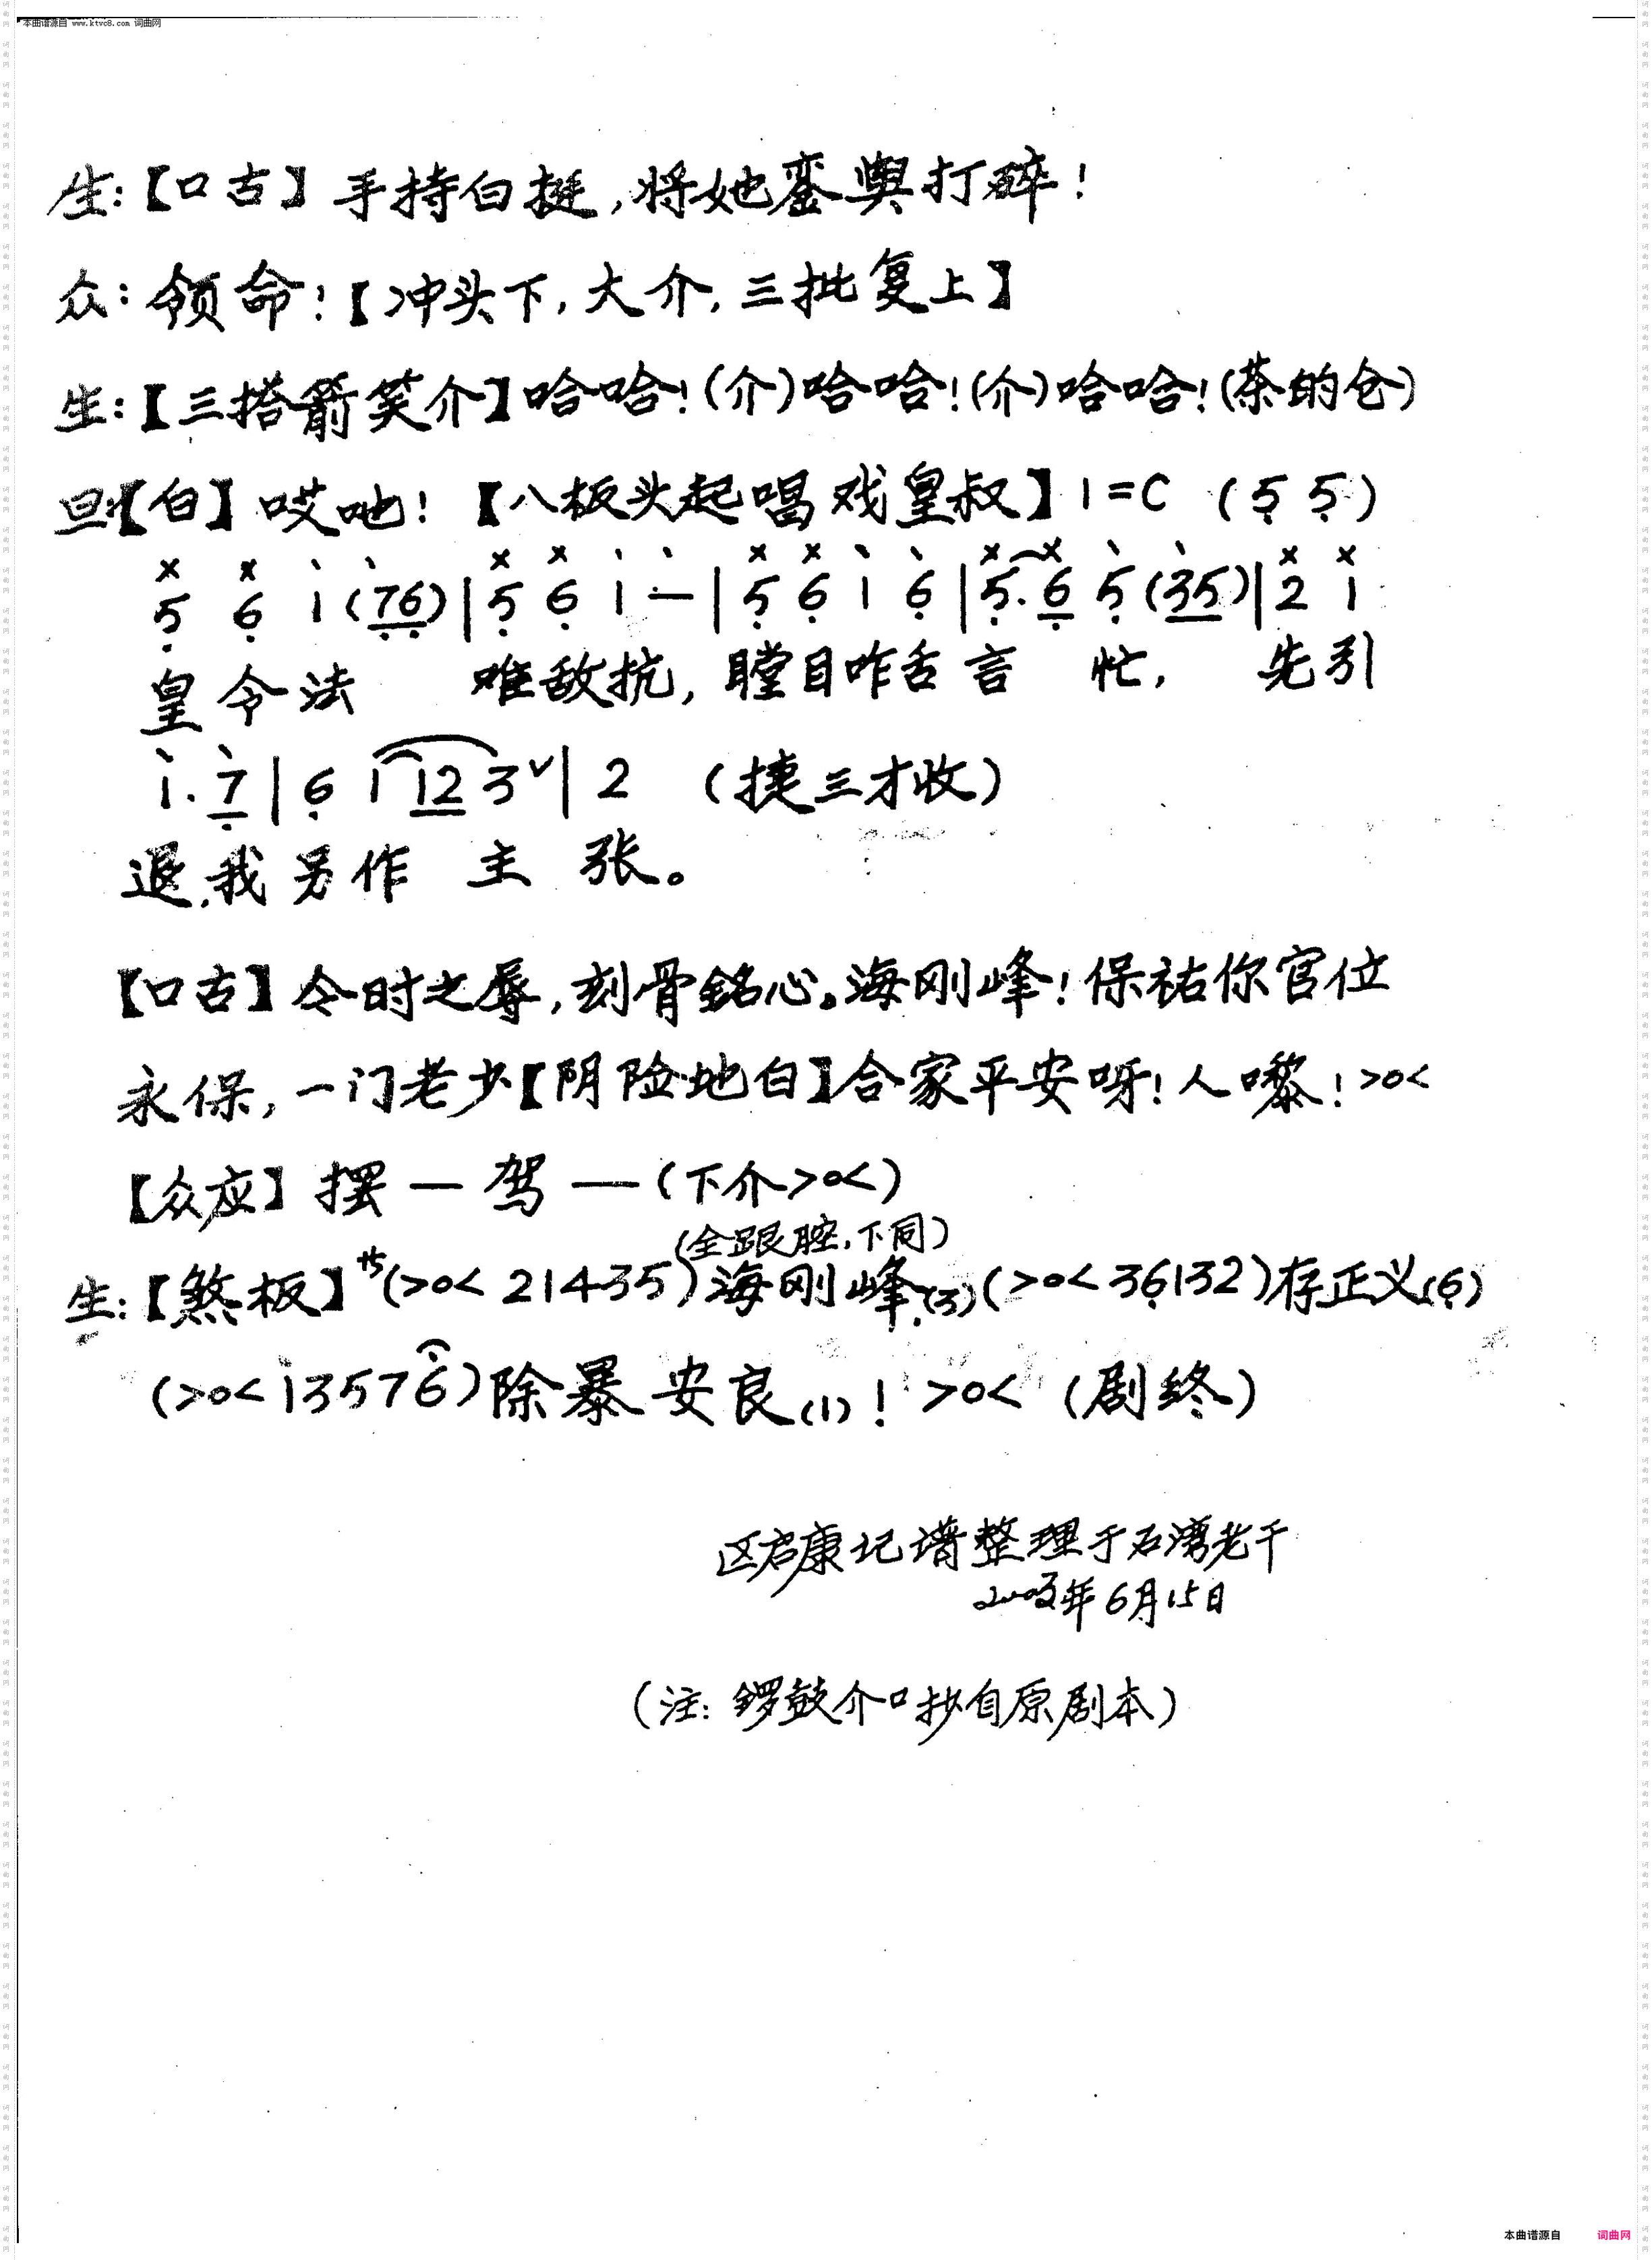 本曲谱源自 www.ktvc8.com 词曲网
生:【口古】手持白挺,将她銮舆打碎!
众:领命!【冲头下,大介,三批复上】
生:【三搭箭笑介】哈哈!(介)哈哈!(介)哈哈!(茶的仓)
旦:【白】哎吔!【八板头起唱戏皇叔】1=C (5̣ 5̣)
× × ヽ ヽ × × ヽ ヽ × × ヽ ヽ × × ヽ ヽ × ×
5̣ 6̣ 1 (7̣6̣) | 5̣ 6̣ 1 — | 5̣ 6̣ 1 6̣ | 5̣. 6̣ 5̣ (35) | 2 1
皇令法 难敌抗,瞠目咋舌言 忙, 先引
ヽ ヽ
1. 7̣ | 6̣ 1 12 3ˇ | 2 (捷三才收)
退,我另作 主 张。
【口古】今时之辱,刻骨銘心。海刚峰!保祐你官位
永保,一门老少【阴险地白】合家平安呀!人嚟!>o<
【众应】摆 — 驾 —(下介>o<)
(全跟腔,下同)
生:【煞板】サ(>o< 21435)海刚峰,(3)(>o< 36̣132)存正义(6̣)
(>o< i3576)除暴安良(1)! >o< (剧终)
区启康记谱整理于石湾老干
年6月15日
(注:锣鼓介口抄自原剧本)
本曲谱源自 词曲网